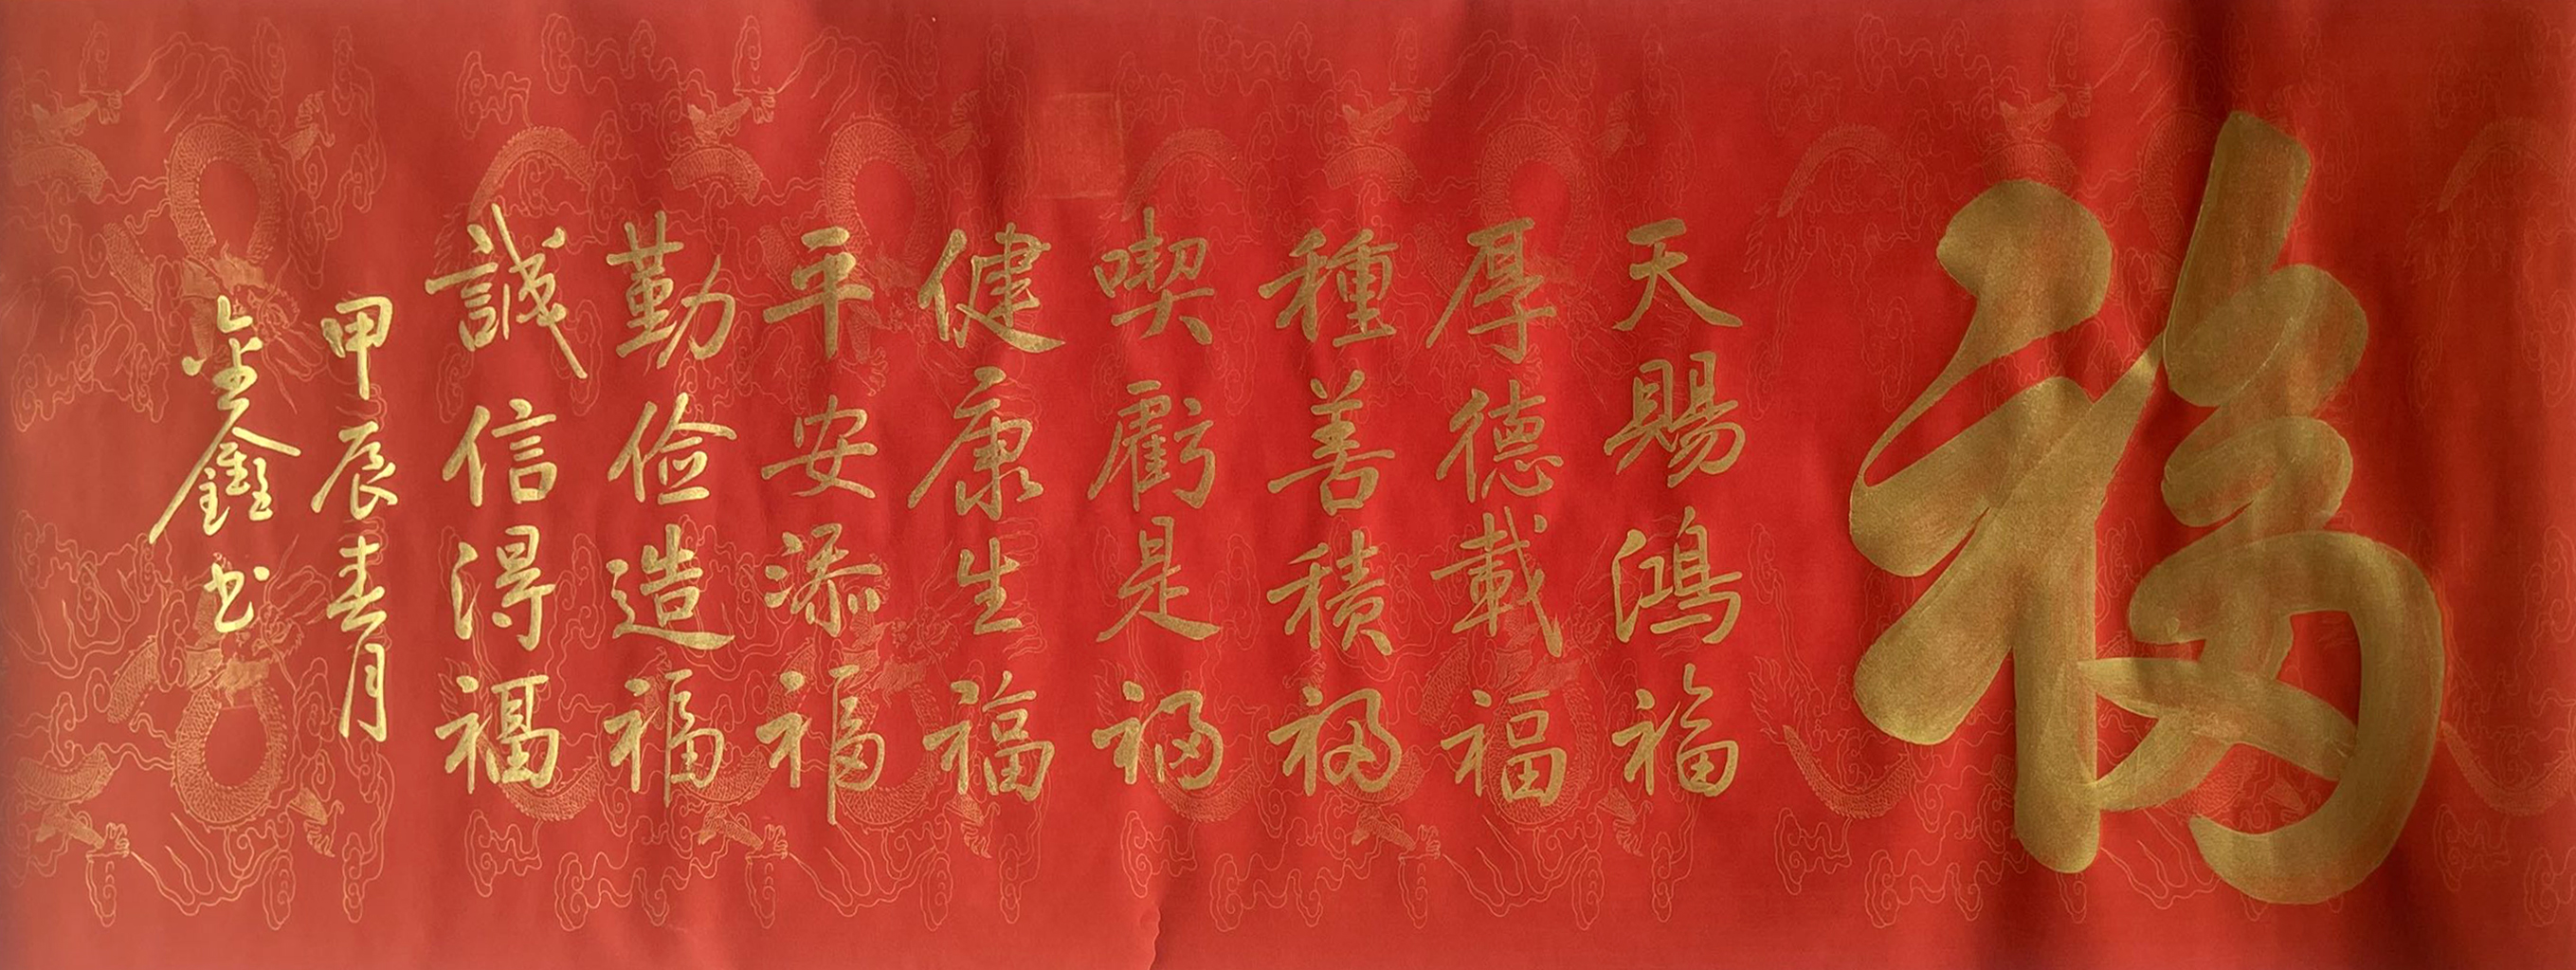 福
天賜鴻福
厚德載福
種善積福
喫虧是福
健康生福
平安添福
勤俭造福
誠信得福
甲辰春月
金鑫书